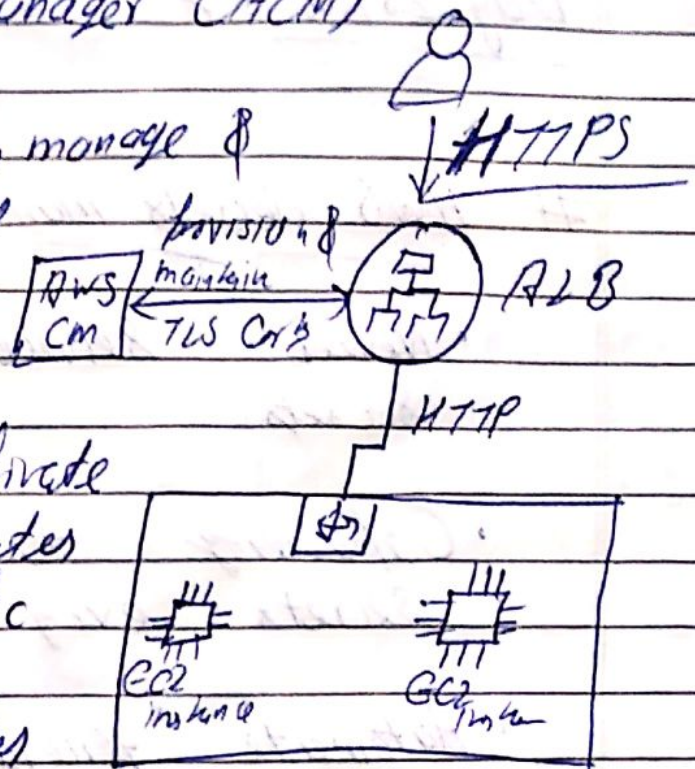 anager (ACM)
manage &
HTTPS
Provision &
maintain
TLS Certs
AWS
CM
ALB
HTTP
ivate
tes
c
EC2
instance
EC2
es